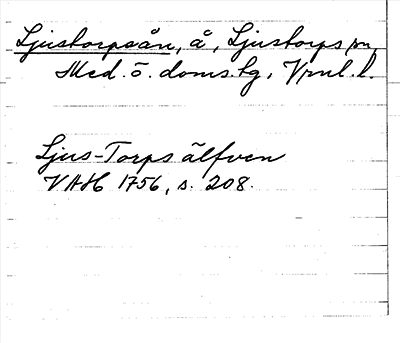 Ljustorpsån, å, Ljustorps sn,
Med. ö. doms.tg, Vrnl. l.
Ljus-Torps älfven
VAH 1756, s. 208.